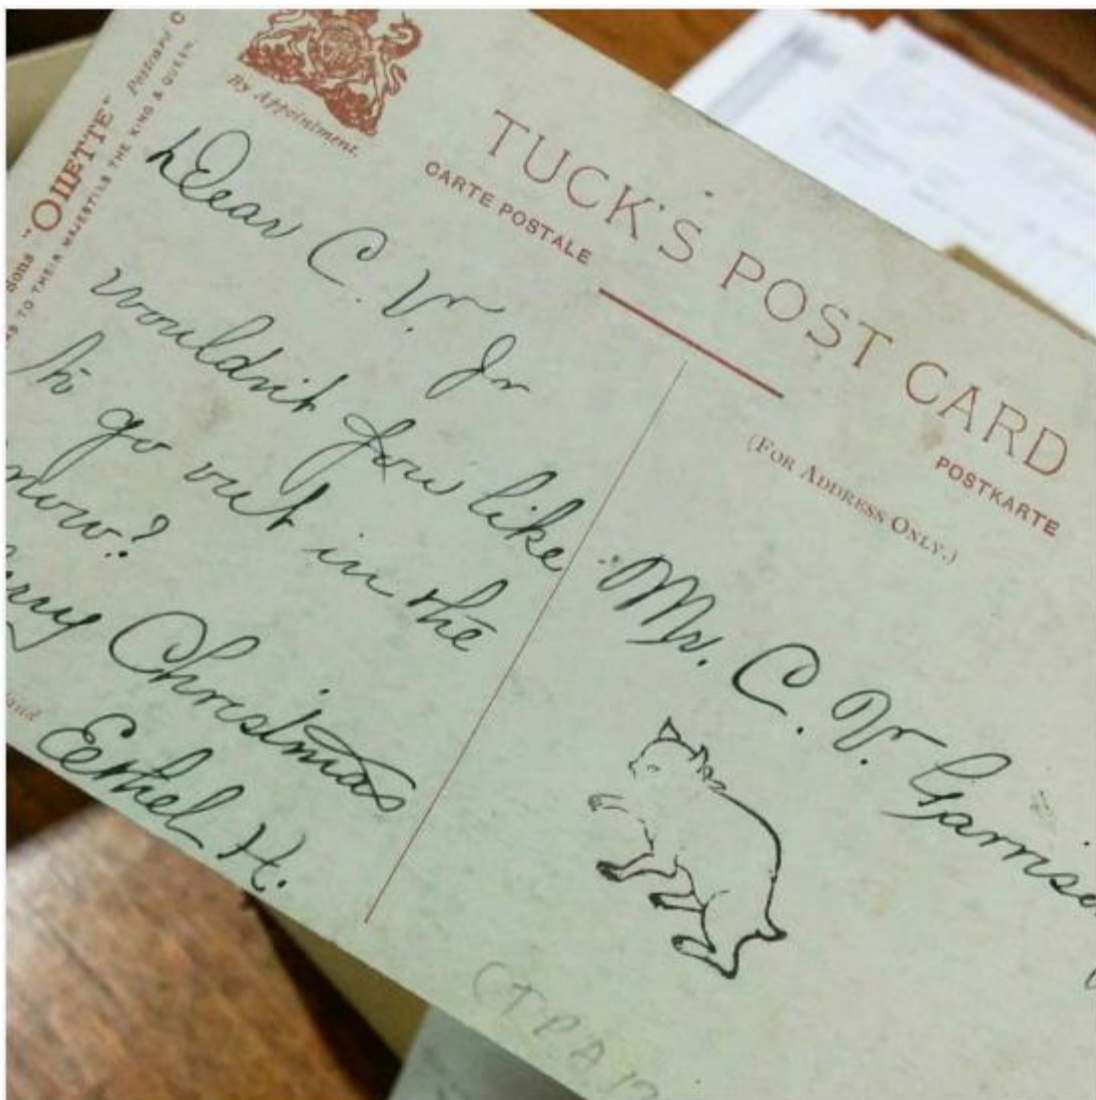 By Appointment.
"OILETTE" Postcard
TO THEIR MAJESTIES THE KING & QUEEN.
TUCK'S POST CARD
CARTE POSTALE
POSTKARTE
(FOR ADDRESS ONLY.)
Dear C. V. Jr
wouldn't you like
to go out in the
now?
Christmas
Eethel H.
Mr. C. V. Garriso
(T P A